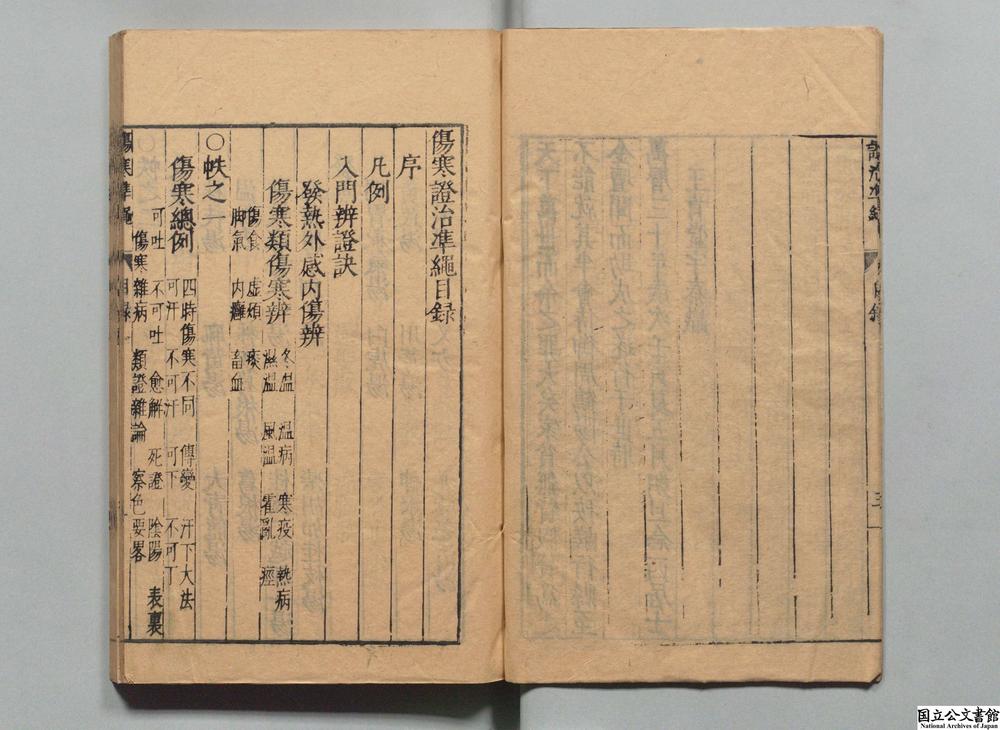 傷寒證治準繩目録
序
凡例
入門辨證訣
發熱外感内傷辨
傷寒類傷寒辨
冬温 温病 寒疫 熱病
濕温 風温 霍亂 痙
傷食 虚煩 痰
脚氣 内癰 畜血
○帙之一
傷寒總例
四時傷寒不同 傳變 汗下大法
可汗 不可汗 可下 不可丁
可吐 不可吐 愈解 死證 陰陽 表裏
傷寒雜病 類證雜論 察色要畧
傷寒準繩 目録 一
国立公文書館
National Archives of Japan